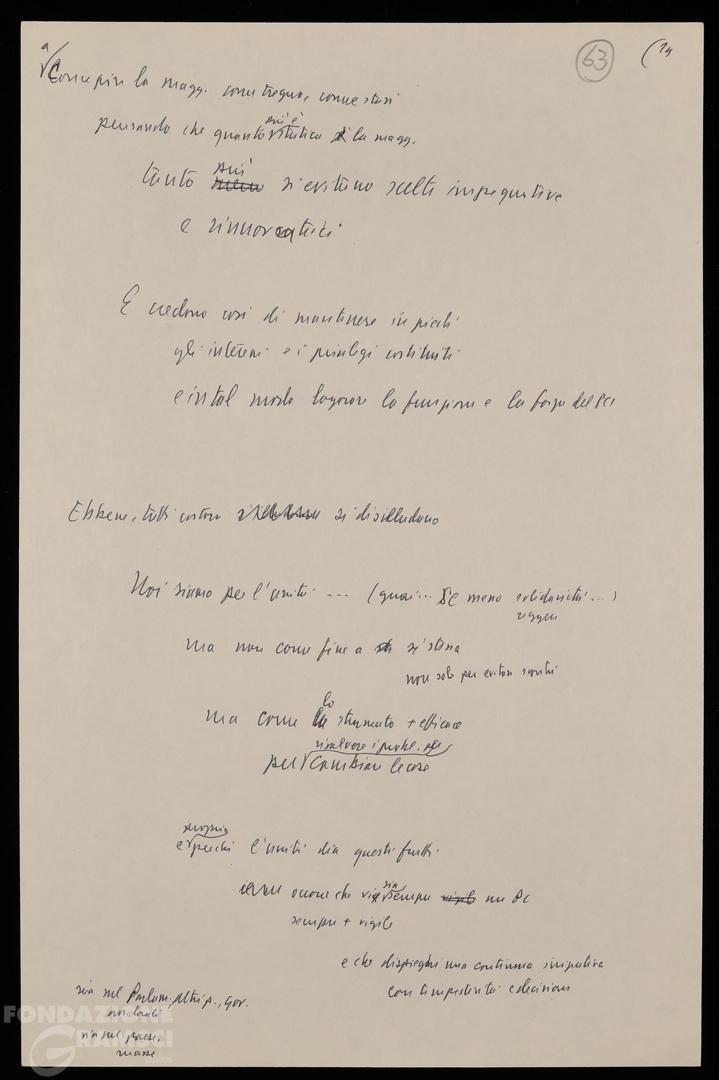 63 (14
a) Concepire la magg. come tregua, come stasi
pensando che quanto più è statica la magg.
tanto più si evitano scelte impegnative
e rinnovatrici
E credono così di mantenere in piedi
gli interessi e i privilegi costituiti
e in tal modo logorare la funzione e la forza del PCI
Ebbene, tutti costoro si disilludano
Noi siamo per l'unità ... (guai ... se meno solidarietà ...)
ma non come fine a sé stessa
non solo per evitare
ma come lo strumento + efficace
per risolvere i probl. cambiare le cose
e proprio perché l'unità dia questi frutti
occorre che vi sia sempre un PC
sempre + vigile
e che dispieghi una continua iniziativa
con tempestività e decisione
sia nel Parlam., altri p., Gov.
enti locali
sia nel paese,
masse
FONDAZIONE
GRAMSCI
onlus